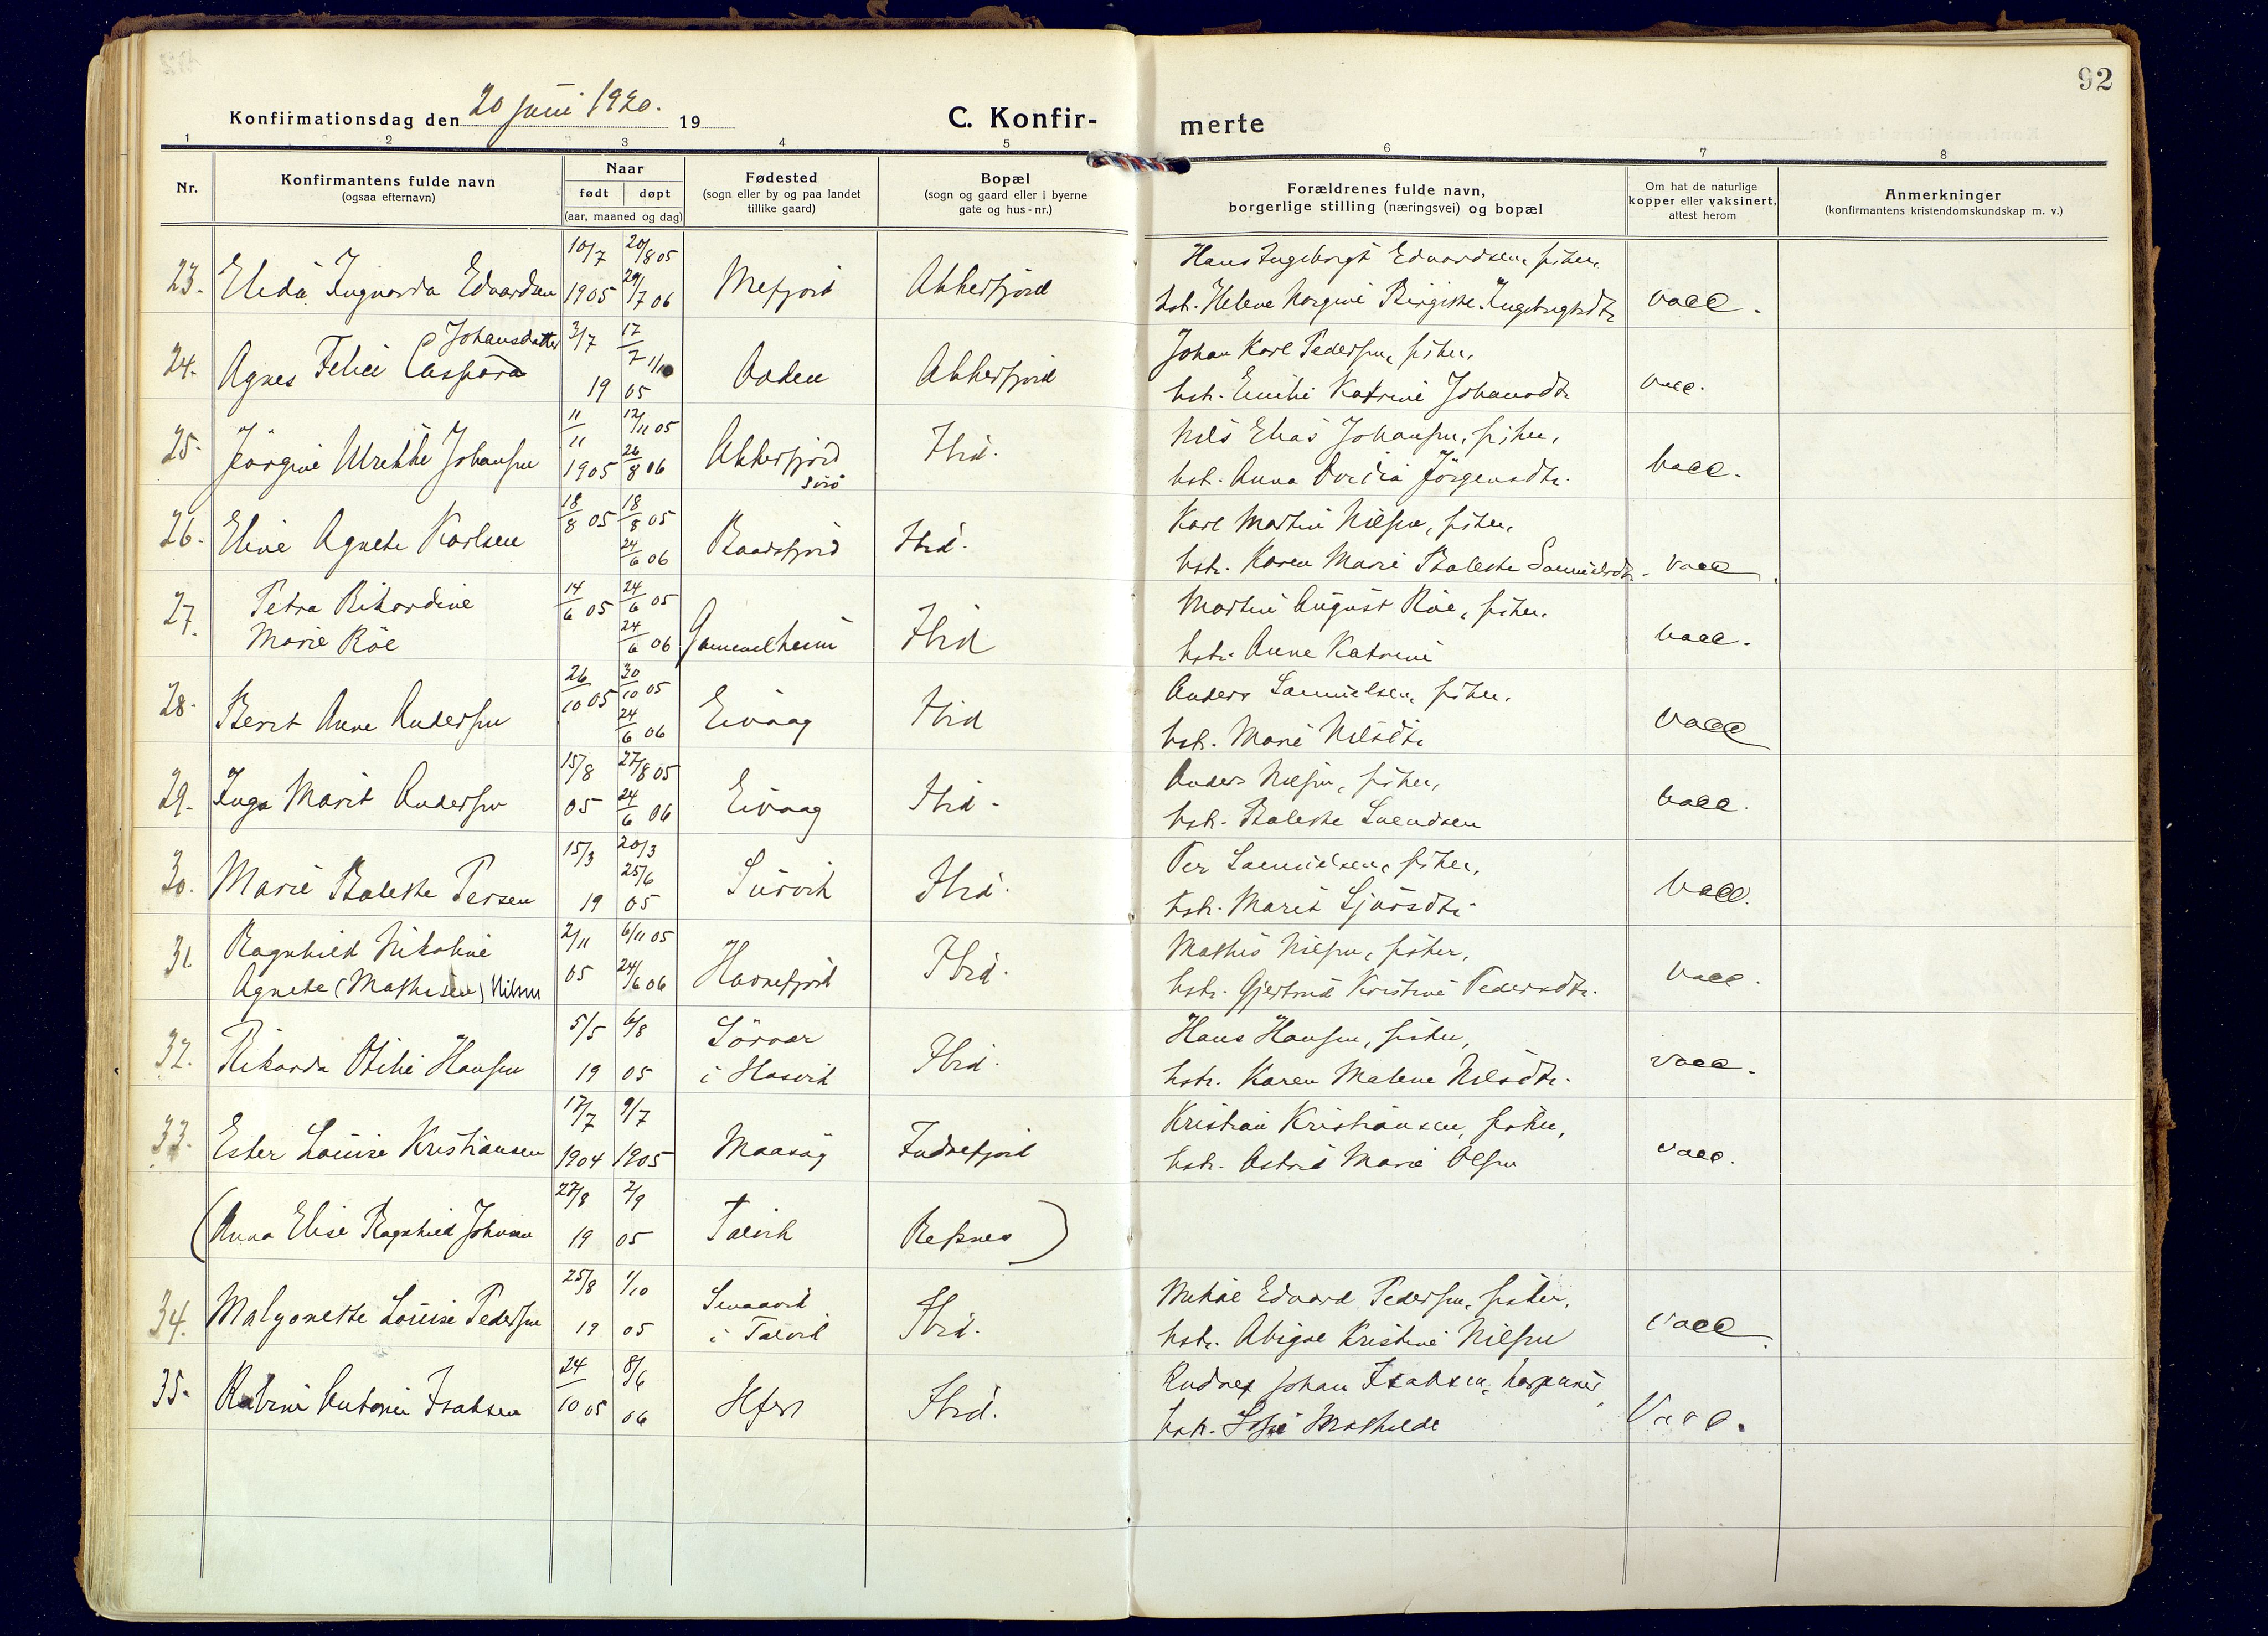 92
Konfirmationsdag den 20 juni 1920. 19
C. Konfir-
merte
1 2 3 4 5 6 7 8
Nr.
Konfirmantens fulde navn
(ogsaa efternavn)
Naar
født døpt
(aar, maaned og dag)
Fødested
(sogn eller by og paa landet
tillike gaard)
Bopæl
(sogn og gaard eller i byerne
gate og hus-nr.)
Forældrenes fulde navn,
borgerlige stilling (næringsvei) og bopæl
Om hat de naturlige
kopper eller vaksinert,
attest herom
Anmerkninger
(konfirmantens kristendomskundskap m. v.)
10/7 20/8 05 Hans Ingebrigt Edvardsen, fisker,
23. Elida Ingvarda Edvardsen 1905 29/7 06 Mefjord Akkerfjord hstr. Helene Norgine Birgitte Ingebrigtsdtr vacc.
Johansdatter 3/7 17/7 1/10 Johan Karl Pedersen, fisker,
24. Agnes Felicie Caspara 19 05 Aaden Akkerfjord hstr. Emilie Katrine Johansdtr vacc.
11/11 12/11 05 Nils Elias Johansen, fisker,
25. Jörgine Ulrikke Johansen 1905 26/8 06 Akkerfjord Ibid. hstr. Anna Dordia Jörgensdtr. vacc.
Sörö
18/8 05 18/8 05 Karl Martin Nilsen, fisker,
26. Eline Agnete Karlsen 24/6 06 Baadsfjord Ibid. hstr. Karen Marie Baleske Samuelsdtr. vacc.
27. Petra Rikardine 14/6 05 24/6 05 Martin August Röe, fisker,
Marie Röe 24/6 06 Gammelheim Ibid hstr. Anne Katrine vacc.
26/10 05 30/10 05 Anders Samuelsen, fisker,
28. Berit Anne Andersen 24/6 06 Eivaag Ibid hstr. Marie Nilsdtr vacc
15/8 27/8 05 Anders Nilsen, fisker,
29. Inga Marit Andersen 05 24/6 06 Eivaag Ibid. hstr. Baleske Svendsen vacc.
15/3 20/3 25/6 Per Samuelsen, fisker,
30. Marie Baleske Persen 19 05 Survik Ibid. hstr. Marit Sjursdtr. vacc.
31. Ragnhild Nikoline 2/11 6/11 05 Mathis Nilsen, fisker,
Agnete (Mathisen) Nilsen 05 24/6 06 Havnefjord Ibid. hstr. Gjertrud Kristine Pedersdtr. vacc.
5/5 6/8 Sörvær Hans Hansen, fisker,
32. Rikarda Otilie Hansen 19 05 i Hasvik Ibid. hstr. Karen Malene Nilsdtr. vacc.
17/7 9/7 Kristian Kristiansen, fisker,
33. Ester Louise Kristiansen 1904 1905 Maasöy Indrefjord hstr. Astrid Marie Olsen vacc.
27/8 2/9
(Anna Elise Ragnhild Johnsen 19 05 Talvik Refsnes)
25/8 1/10 Mikal Edvard Pedersen, fisker,
34. Malyonette Louise Pedersen 19 05 i Talvik Ibid. hstr. Abigael Kristine Nilsen vacc.
24/10 05 8/6 06 Johan Isaksen,
35. Katrine Antonie Isaksen Hfest Ibid. hstr. Sofie Mathilde Vacc.